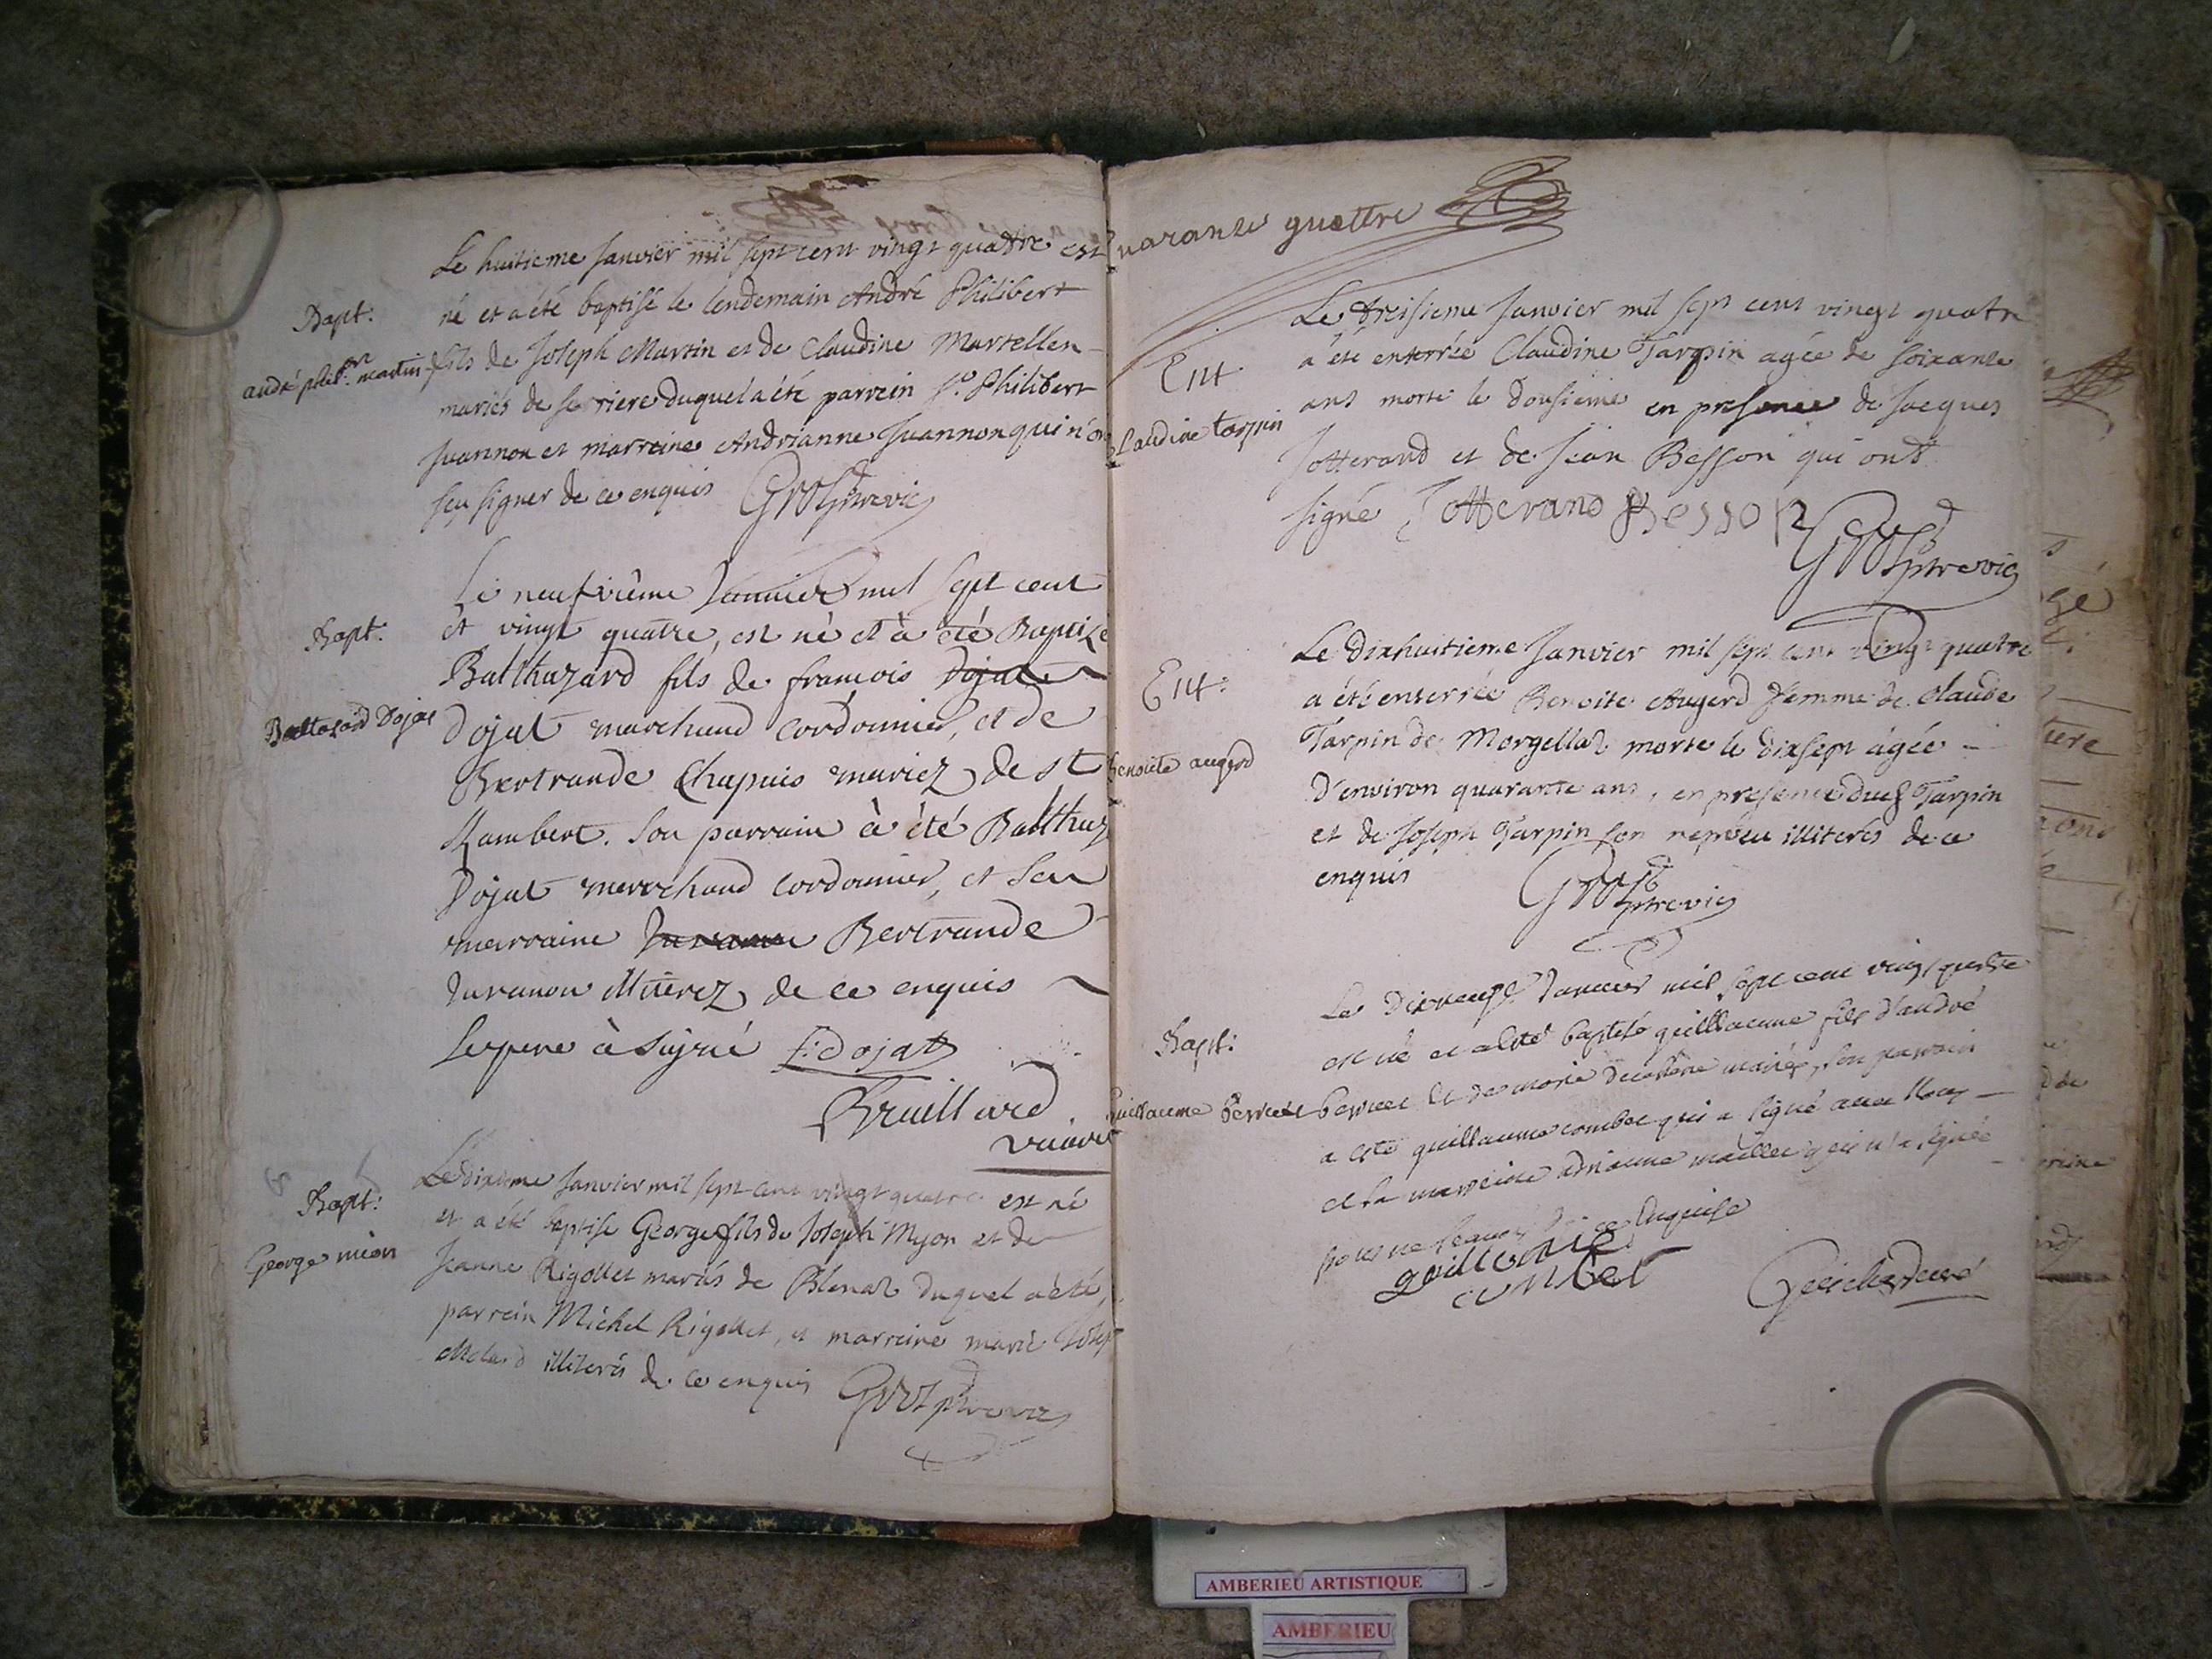 Le huitieme Janvier mil sept cent vingt quatre est
Bapt:
né et a été baptisé le lendemain André Philibert
André philib.^r martin
fils de Joseph Martin et de Claudine Martellen
mariés de serriere duquel a été parrein S.^r Philibert
Juannon et marreine Andrianne Juannon qui n'on
sçu signer de ce enquis Gros ptre vic
Le neufvième Janvier mil sept cent
Bapt:
et vingt quatre, est né et à été Baptizé
Balthazard fils de francois Dojat
Baltasard Dojat
Dojat marchand cordonnier, et de
Bertrande Chapuis mariez de st
Rambert. Son parrain à été Balthaz
Dojat marchand cordonnier, et sa
marraine Juranon Bertrande
Juranon illiterez de ce enquis
Le pere à signé F: dojat
Bruillard
vicaire
Le dixieme Janvier mil sept cent vingt quatre est né
Bapt:
et a été baptisé George fils de Joseph Myon et de
George mion
Jeanne Rigollet mariés de Blanaz duquel a été
parrein Michel Rigollet, et marreine marie Josep
illiterés de ce enquis Gros ptre vic
uarante quattre
Le treisieme Janvier mil sept cent vingt quatre
Ent
a été enterrée Claudine Tarpin agée de soixante
Claudine tarpin
ans morte le dousieme en presence de Jacques
Jotterand et de Jean Besson qui ont
signé Jotterand Besson
Gros ptre vic
Le dixhuitieme Janvier mil sept cent vingt quatre
Ent:
a été enterrée Benoite Augerd femme de Claude
Benoite augerd
Tarpin de Morgellaz morte le dixsept agée
d'environ quarante ans, en presence dud Tarpin
et de Joseph Tarpin son neveu illiterés de ce
enquis Gros ptre vic
Le dixneufe Janvier mil sept cent vingt quatre
Bapt:
est né et a esté baptisé guilllaume fils d'andré
guillaume
et de marie mariés, son parrain
a esté guillaume combet qui a signé avec Nous
et sa marreine adrianne maillet qui n'a signée
pour ne scavoir de ce Enquise
guillaume
combet